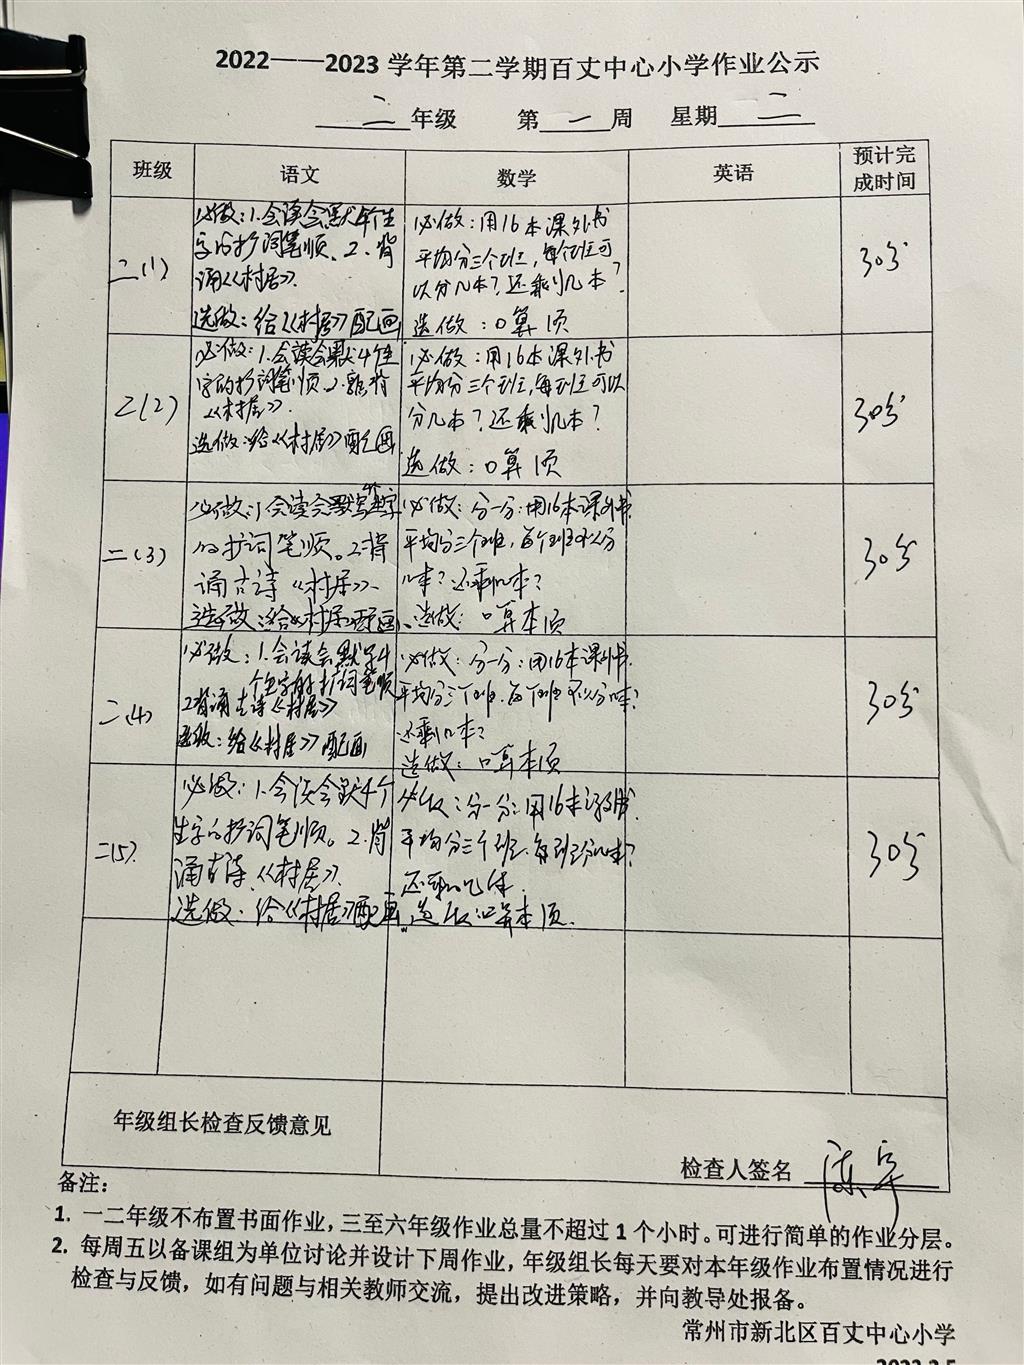 2022——2023 学年第二学期百丈中心小学作业公示
二年级 第一周 星期二
班级 语文 数学 英语 预计完成时间
二(1)
必做：1.会读会默4个生
字的扩词笔顺、2、背
诵《村居》.
选做：给《村居》配画
必做：用16本课外书
平均分三个班，每个班可
以分几本？还剩几本？
选做：口算1页
30分
二(2)
必做：1.会读会默4个生
字的扩词笔顺.2.熟背
《村居》.
选做：给《村居》配画
必做：用16本课外书
平均分三个班，每班可以
分几本？还剩几本？
选做：口算1页
30分
二(3)
必做：1会读会默写4个生字
的扩词笔顺。2.背
诵古诗《村居》、
选做：给《村居》配画、
必做：分一分：用16本课外书.
平均分三个班，每个班可以分
几本？还剩几本？
选做：口算本1页
30分
二(4)
必做：1.会读会默写4
个生字的扩词笔顺
2背诵古诗《村居》
选做：给《村居》配画
必做：分一分：用16本课外书.
平均分三个班.每个班可以分几本？
还剩几本？
选做：口算本1页
30分
二(5).
必做：1.会读会默4个
生字的扩词笔顺。2.背
诵古诗、《村居》.
选做：给《村居》配画
必做：分一分：用16本课外书.
平均分三个班.每班分几本？
还剩几本.
选做口算本1页.
30分
年级组长检查反馈意见
检查人签名
备注：
1. 一二年级不布置书面作业，三至六年级作业总量不超过 1 个小时。可进行简单的作业分层。
2. 每周五以备课组为单位讨论并设计下周作业，年级组长每天要对本年级作业布置情况进行
检查与反馈，如有问题与相关教师交流，提出改进策略，并向教导处报备。
常州市新北区百丈中心小学